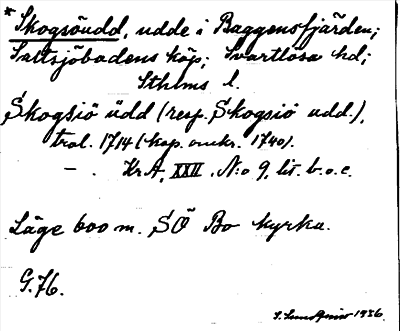 * Skogsöudd, udde i Baggensfjärden;
Saltsjöbadens köp; Svartlösa hd;
Sthlms l.
Skogsiö üdd (resp. Skogsiö udd),
trol. 1714 (kop. omkr. 1740).
— . Kr.A, XXII, N:o 9, lit. b. o. c.
Läge 600 m. SÖ Bo kyrka.
G.76.
1936.